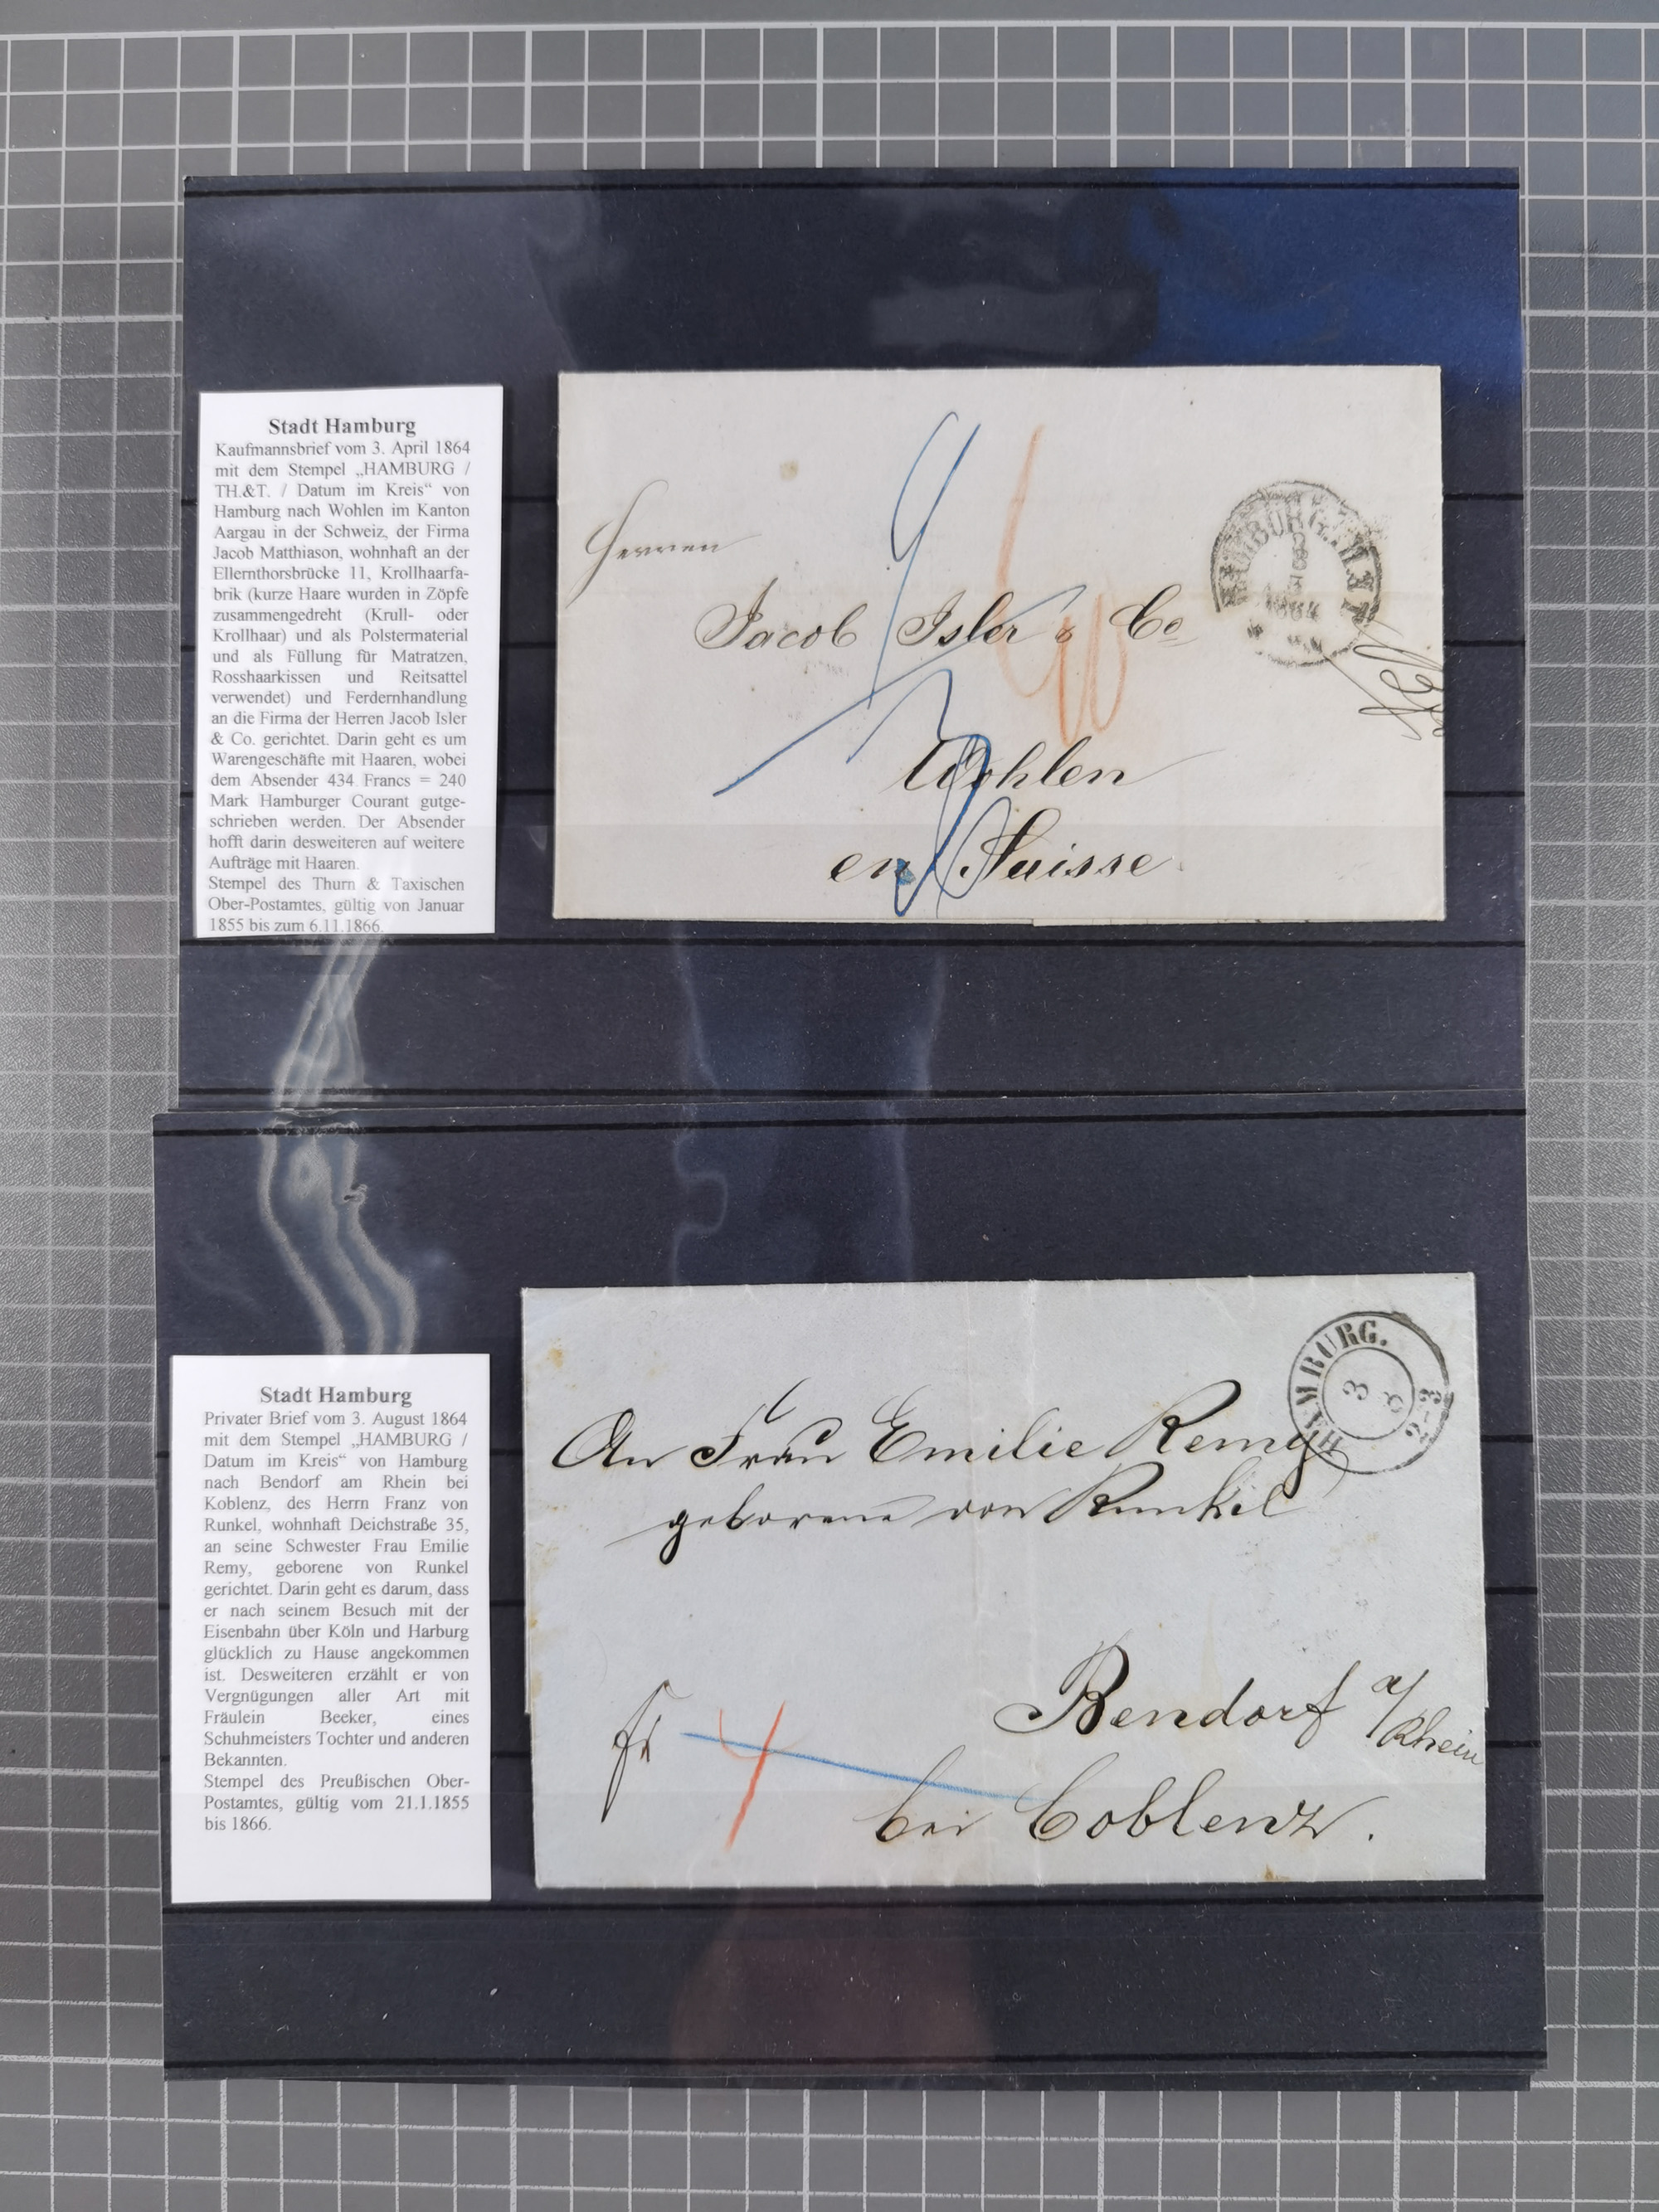 Stadt Hamburg
Kaufmannsbrief vom 3. April 1864
mit dem Stempel „HAMBURG /
TH.&T. / Datum im Kreis“ von
Hamburg nach Wohlen im Kanton
Aargau in der Schweiz, der Firma
Jacob Matthiason, wohnhaft an der
Ellernthorsbrücke 11, Krollhaarfa-
brik (kurze Haare wurden in Zöpfe
zusammengedreht (Krull- oder
Krollhaar) und als Polstermaterial
und als Füllung für Matratzen,
Rosshaarkissen und Reitsattel
verwendet) und Ferdernhandlung
an die Firma der Herren Jacob Isler
& Co. gerichtet. Darin geht es um
Warengeschäfte mit Haaren, wobei
dem Absender 434 Francs = 240
Mark Hamburger Courant gutge-
schrieben werden. Der Absender
hofft darin desweiteren auf weitere
Aufträge mit Haaren.
Stempel des Thurn & Taxischen
Ober-Postamtes, gültig von Januar
1855 bis zum 6.11.1866.
Herren
Jacob Isler & Co
Wohlen
en Suisse
HAMBURG. TH.&T.
1864
Stadt Hamburg
Privater Brief vom 3. August 1864
mit dem Stempel „HAMBURG /
Datum im Kreis“ von Hamburg
nach Bendorf am Rhein bei
Koblenz, des Herrn Franz von
Runkel, wohnhaft Deichstraße 35,
an seine Schwester Frau Emilie
Remy, geborene von Runkel
gerichtet. Darin geht es darum, dass
er nach seinem Besuch mit der
Eisenbahn über Köln und Harburg
glücklich zu Hause angekommen
ist. Desweiteren erzählt er von
Vergnügungen aller Art mit
Fräulein Beeker, eines
Schuhmeisters Tochter und anderen
Bekannten.
Stempel des Preußischen Ober-
Postamtes, gültig vom 21.1.1855
bis 1866.
HAMBURG.
3
8
2-3
An Frau Emilie Remy
geborene von Runkel
Bendorf a/Rhein
fr 4
bei Coblenz.